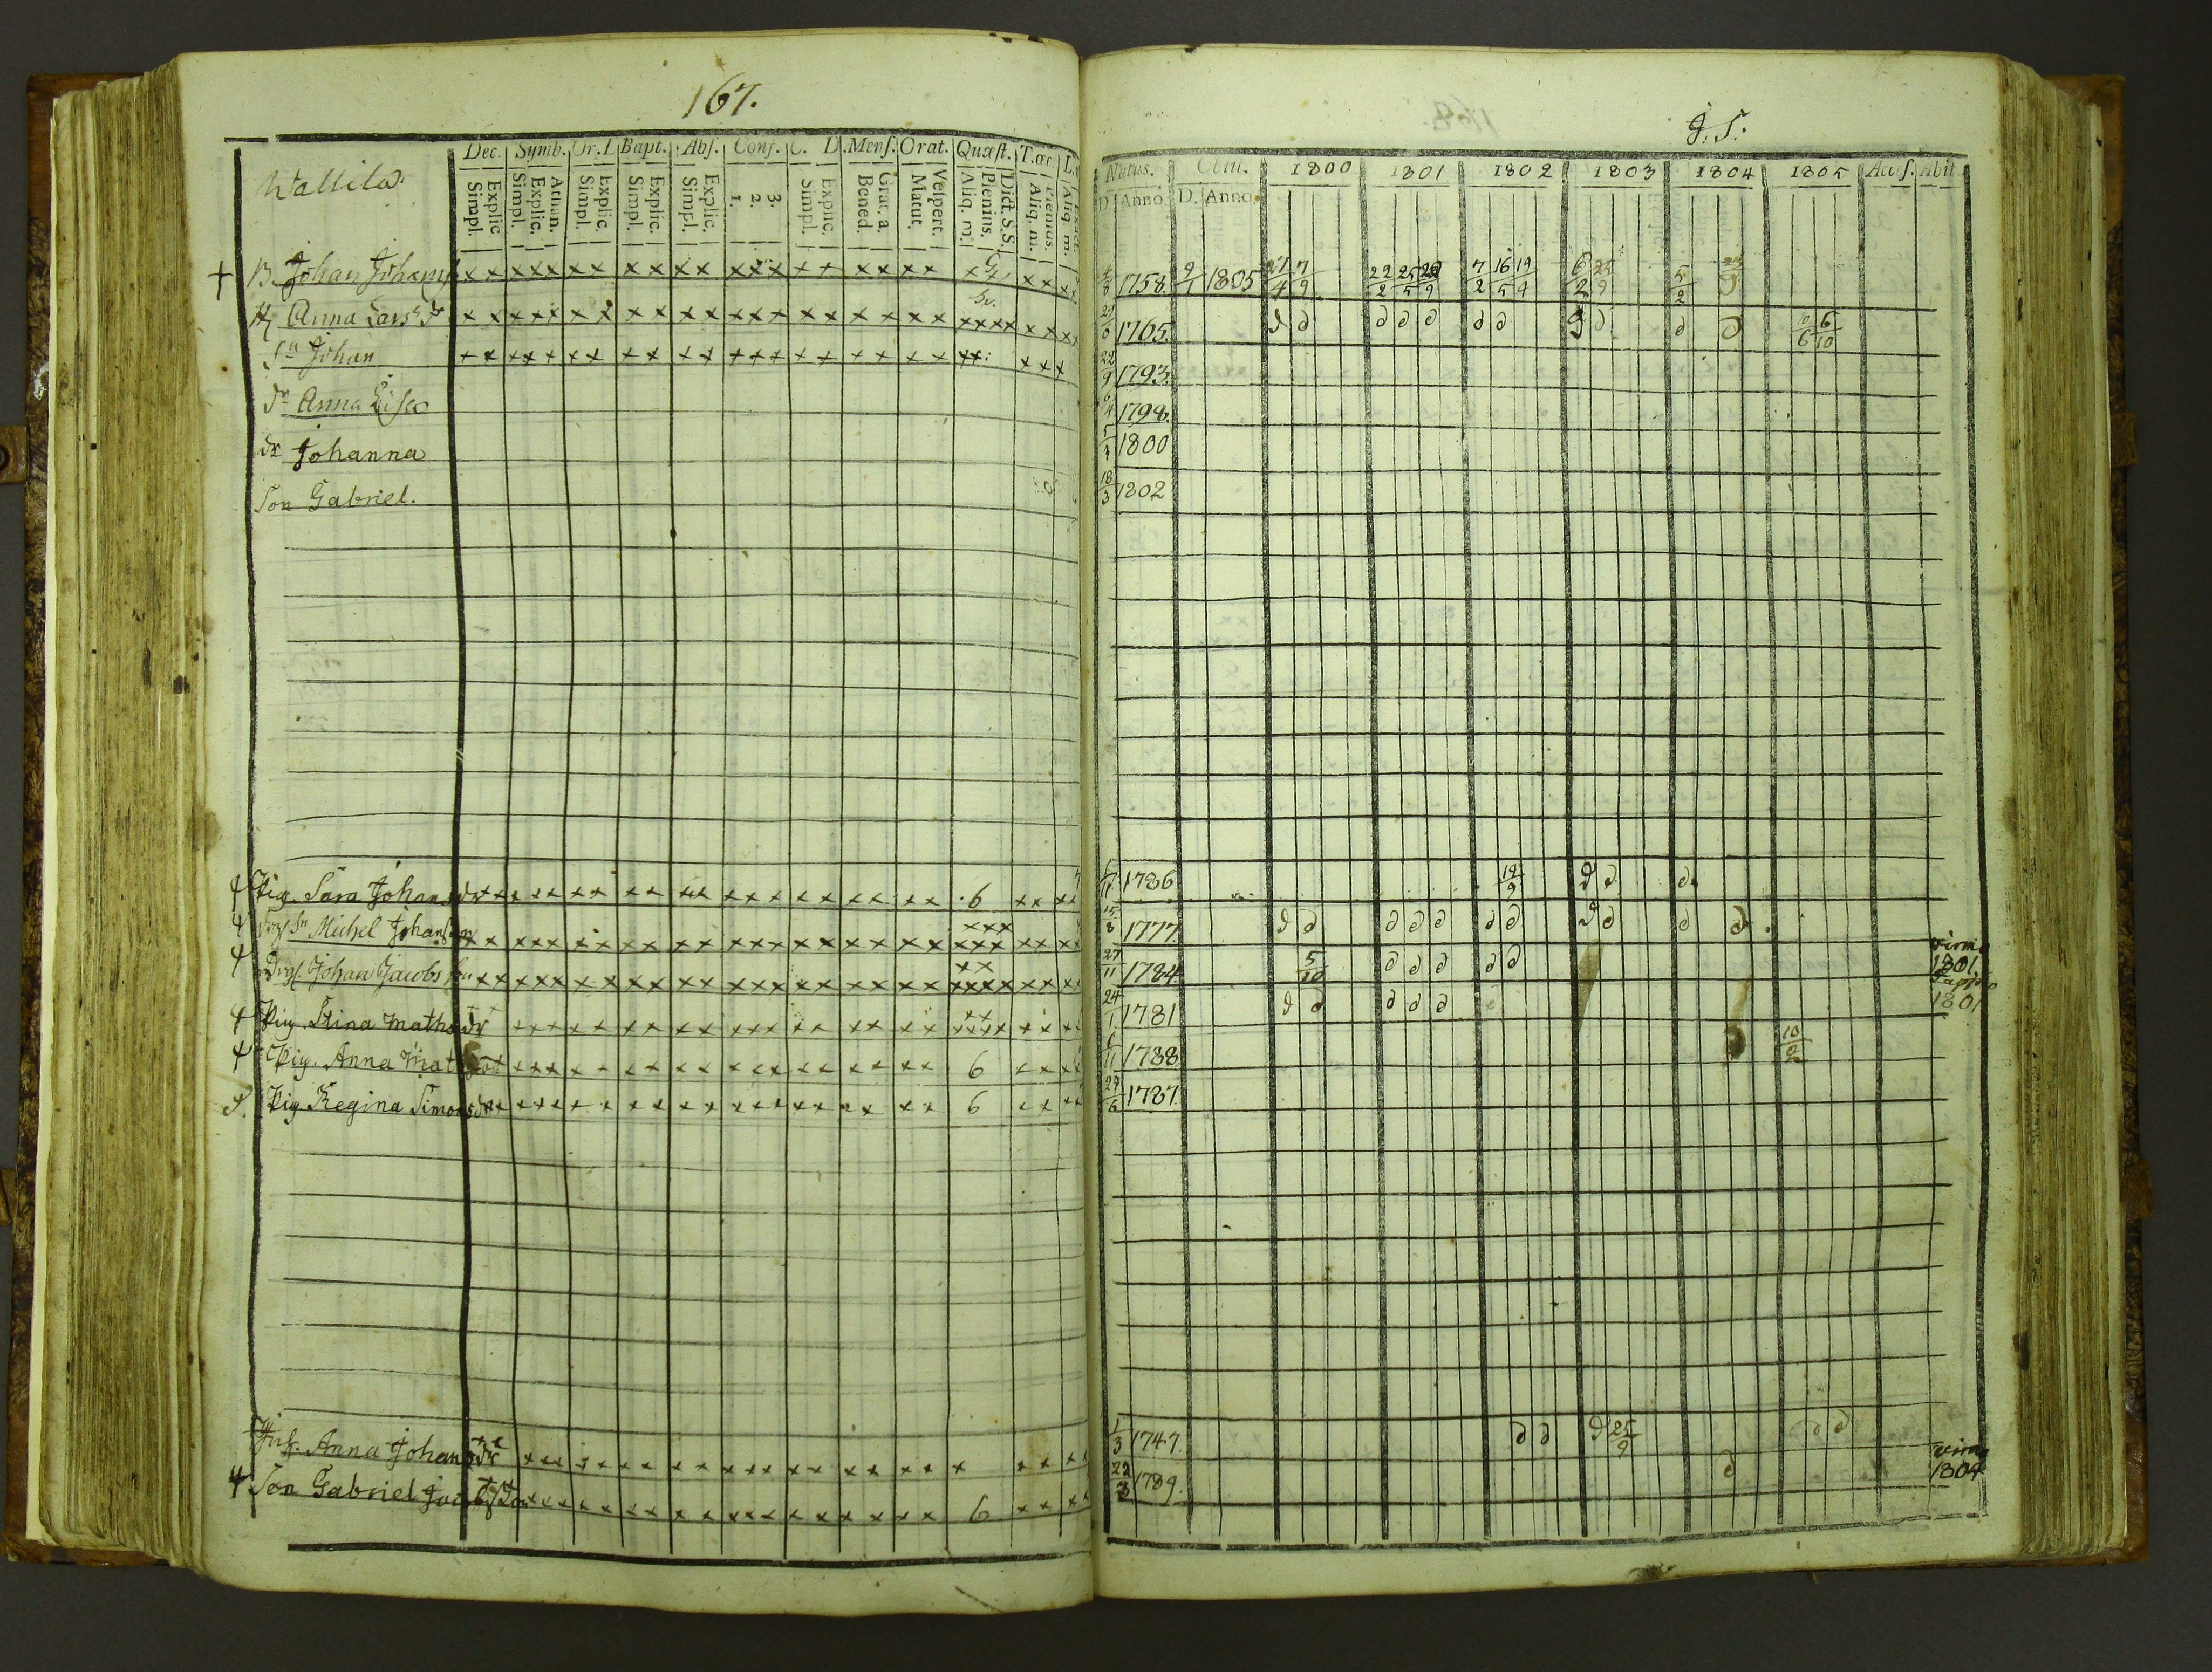 167.
g. S.
Wallila.
Dec. Symb. Or. D. Bapt. Abs. Conf. C. D. Mens. Orat. Quæst. T. œc. L.
Explic. Simpl. Athan. Explic. Simpl. Explic. Simpl. Explic. Simpl. Explic. Simpl. 3. 2. 1. Explic. Simpl. Grat. a. Bened. Vespert. Matut. Dict. S.S. Plenius. Aliq. m. Plenius. Aliq. m. Aliq. m.
Natus. Com. 1800 1801 1802 1803 1804 1805 Access. Abit
D. Anno D. Anno
B. Johan Johans x x x x x x x x x x x x x x x x x x x x x x x x 1758 9/1 1805 27/4 7/9 22/2 25/5 20/9 7/2 16/5 19/9 6/2 25/9 5/2
H Anna Lars dr x x x x x x x x x x x x x x x x x x x x x x x x x x 1765. 10/6 6/10
Sn Johan x x x x x x x x x x x x x x x x x x x x x x x x 22/9 1793.
dr Anna Lisa 1798.
dr Johanna 1800
Son Gabriel. 18/3 1802
Pig. Sara Johansdr x x x x x x x x x x x x x x x x x x 6 x x x x 1786 19/9
Sn Michel Johansson x x x x x x x x x x x x x x x x x x x x x x x x 15/8 1777.
Drgs. Johan Jacobsson x x x x x x x x x x x x x x x x x x x x x x x x 27/11 1784 5/10 1801
Pig. Stina Mathsdr x x x x x x x x x x x x x x x x x x x x x x x 24/1 1781 1801
Pig. Anna Mat x x x x x x x x x x x x x x x x x x 6 x x x x 6/11 1788 10/2
Pig. Regina Simonsdr x x x x x x x x x x x x x x x x x x 6 x x x x 29/6 1787.
Inh. Anna Johansdr x x x x x x x x x x x x x x x x x x x x x x x 1/3 1747. 25/9
Son Gabriel x x x x x x x x x x x x x x x x x x 6 x x x x 22/3 1789. 1804